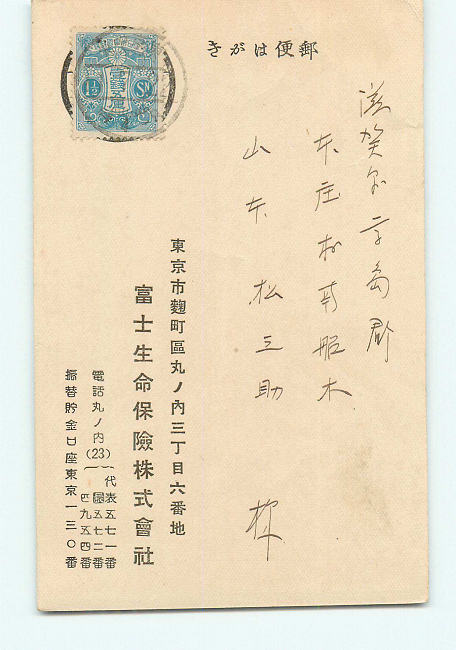 郵便はがき
1½ Sn
壹錢五厘
滋賀縣高島郡
本庄村南船木
山本松三助 様
東京市麴町區丸ノ內三丁目六番地
富士生命保險株式會社
電話丸ノ內(23) 代表五七一番
五七二番
四九五四番
振替貯金口座東京一三〇番